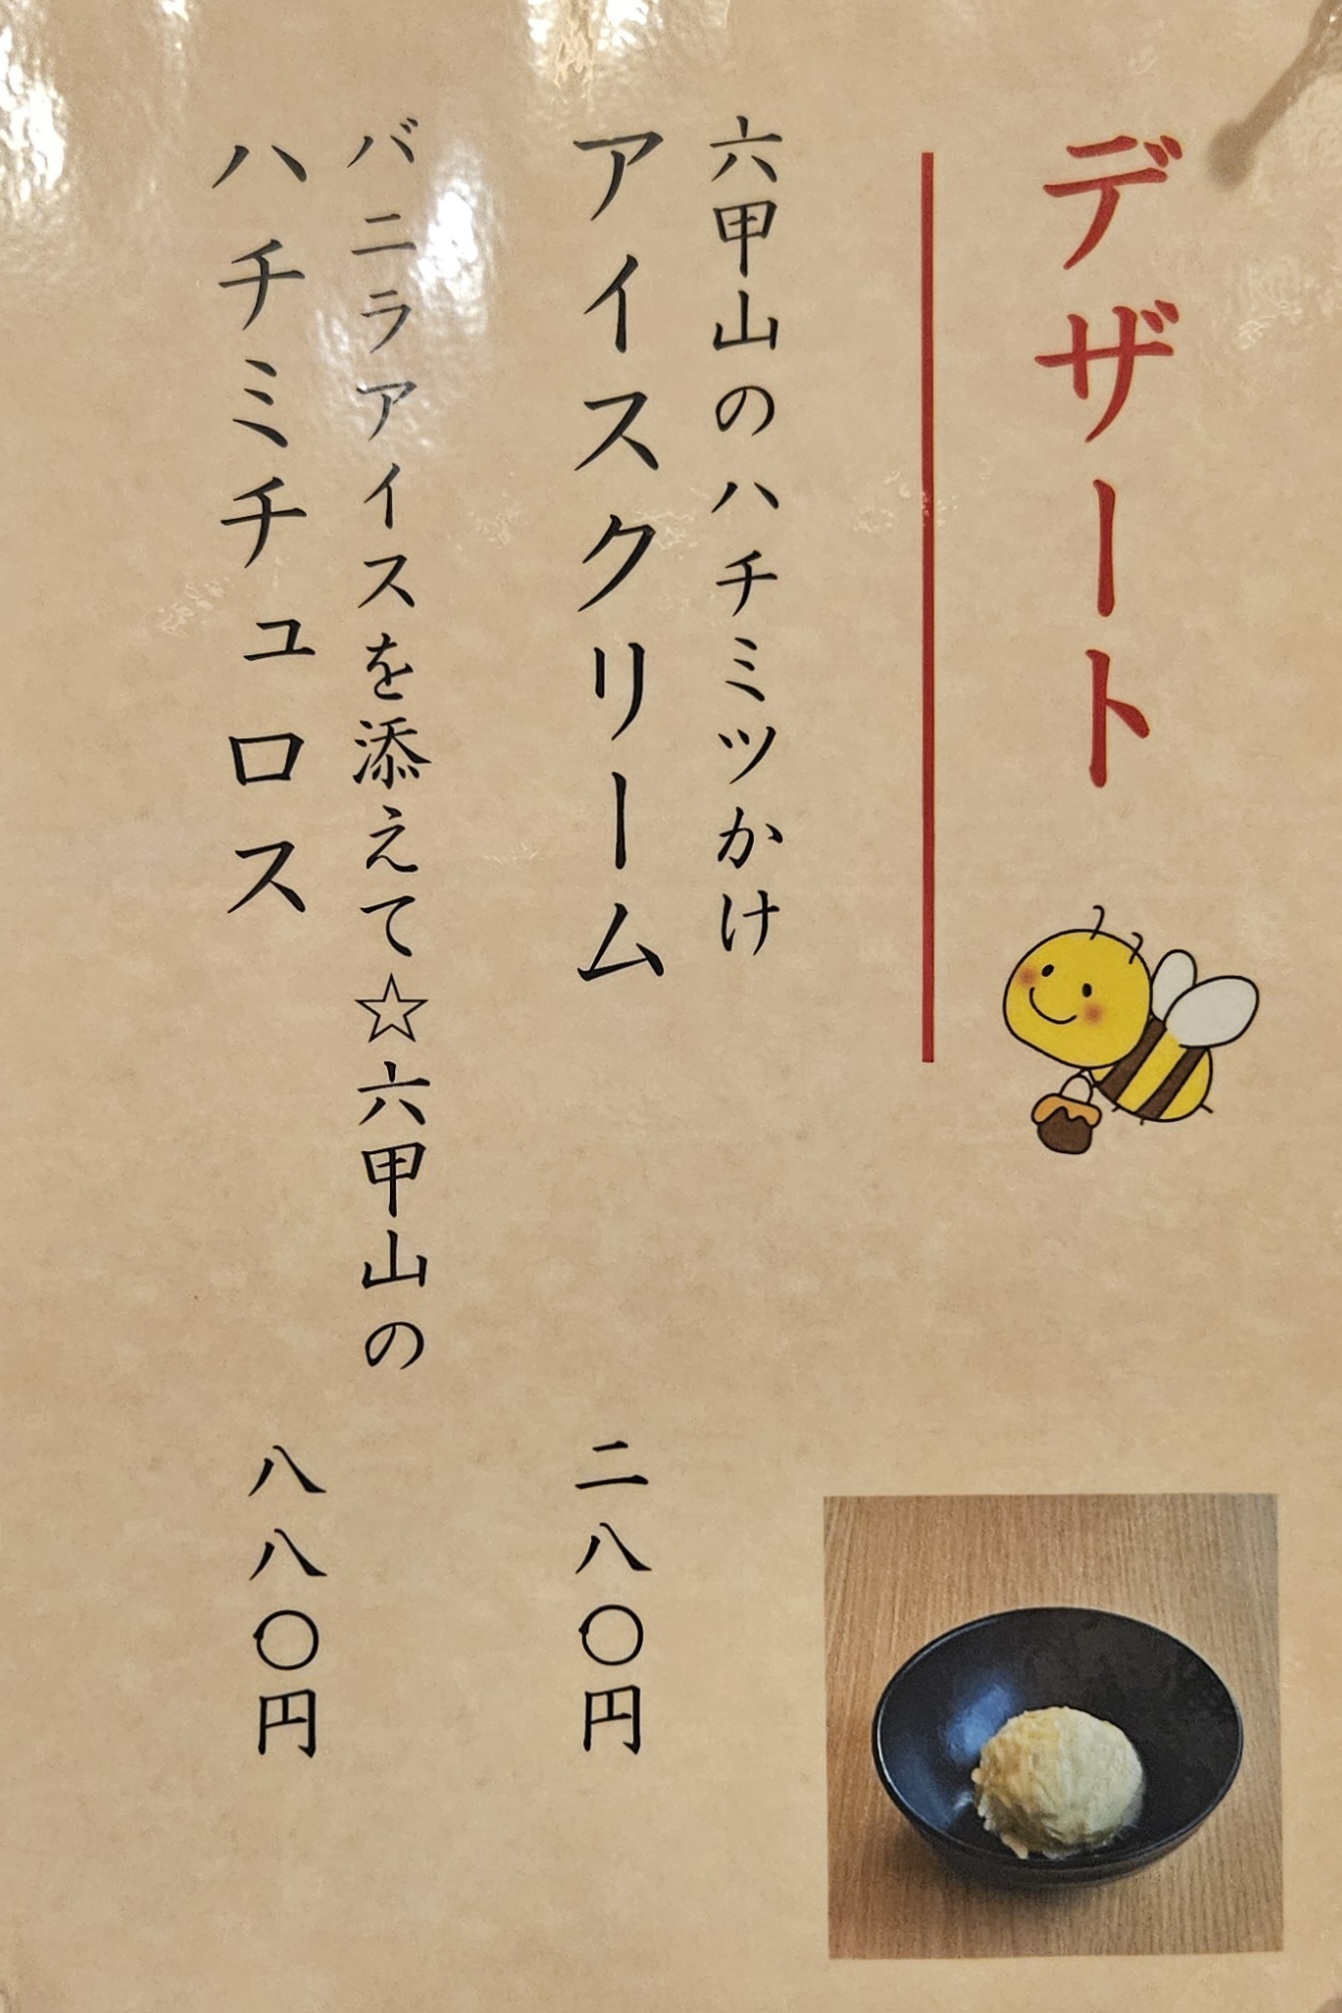 デザート
六甲山のハチミツかけ
アイスクリーム
二八〇円
バニラアイスを添えて☆六甲山の
ハチミチュロス
八八〇円